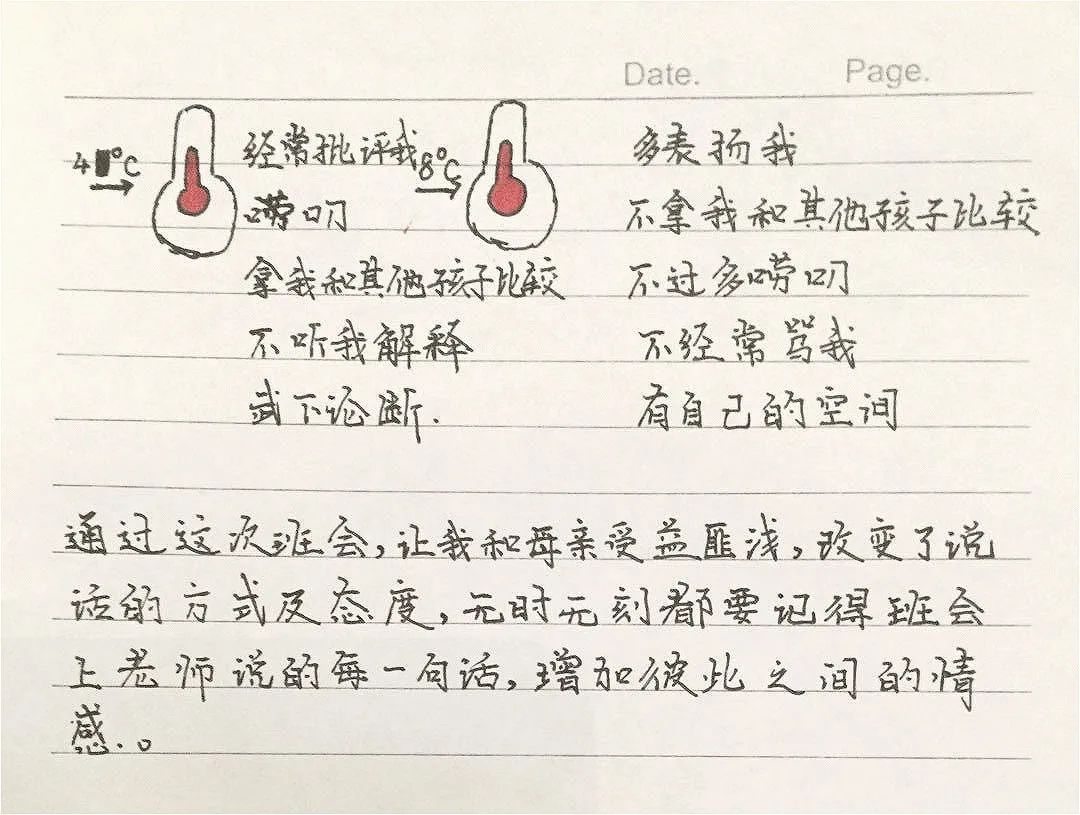 Date. Page.
4 °C 经常批评我 8°C 多表扬我
唠叨 不拿我和其他孩子比较
拿我和其他孩子比较 不过多唠叨
不听我解释 不经常骂我
武下论断. 有自己的空间
通过这次班会,让我和母亲受益匪浅,改变了说
话的方式及态度,无时无刻都要记得班会
上老师说的每一句话,增加彼此之间的情
感..。